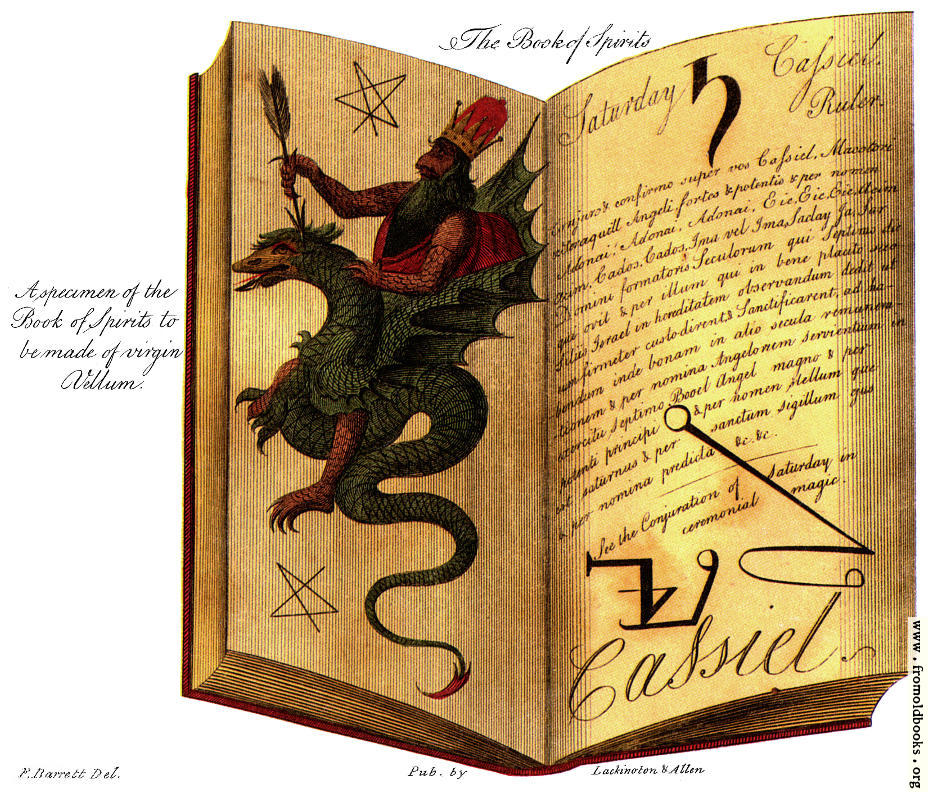 The Book of Spirits
A specimen of the
Book of Spirits to
be made of virgin
Vellum.
Saturday ♄ Cassiel.
Ruler.
Conjuro & confirmo super vos Cassiel, Macoton
Adonai, Adonai, Adonai, Eie, Eie, Eie,
Cados, Cados, Ima vel Ima, Saday, Ja, Sar
Domini formatoris Seculorum qui Septimo die
quievit & per illum qui in bene placito suo
filiis Israel in hereditatem observandum dedit ut
eum firmiter custodirent & Sanctificarent, ad ha-
bendum inde bonam in alio secula remunera-
tionem & per nomina Angelorum servientium in
exercitu septimo Booel Angel magno & per
potenti principi & per nomen stellum que
est saturnus & per sanctum sigillum ejus
& per nomina predicta &c. &c.
See the Conjuration of Saturday in
ceremonial magic.
Cassiel.
F. Barrett Del.
Pub. by
Lackington & Allen
www.fromoldbooks.org